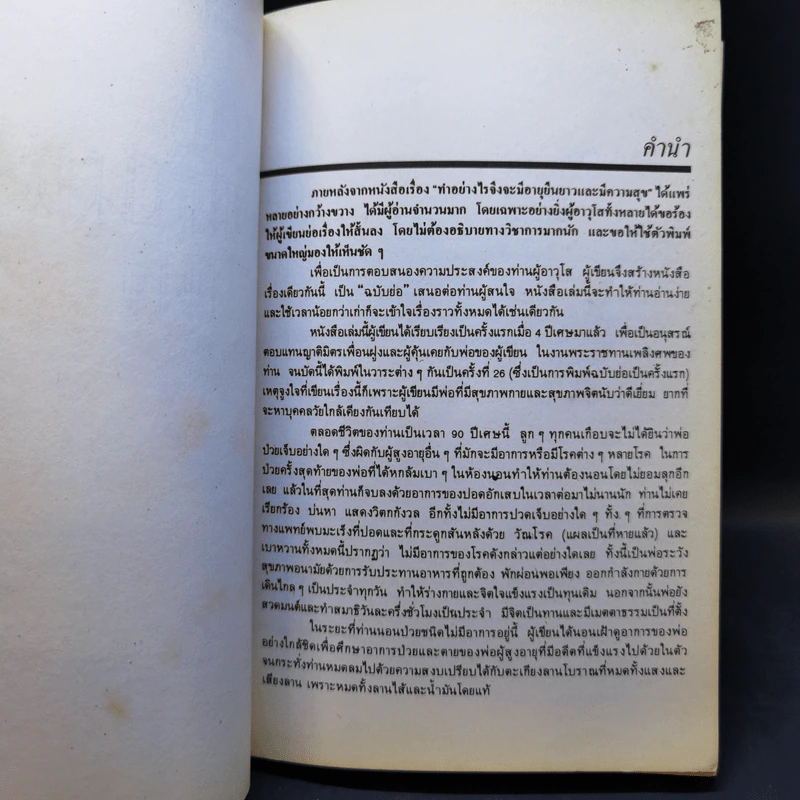 คำนำ
ภายหลังจากหนังสือเรื่อง "ทำอย่างไรจึงจะมีอายุยืนยาวและมีความสุข" ได้แพร่
หลายอย่างกว้างขวาง ได้มีผู้อ่านจำนวนมาก โดยเฉพาะอย่างยิ่งผู้อาวุโสทั้งหลายได้ขอร้อง
ให้ผู้เขียนย่อเรื่องให้สั้นลง โดยไม่ต้องอธิบายทางวิชาการมากนัก และขอให้ใช้ตัวพิมพ์
ขนาดใหญ่มองให้เห็นชัด ๆ
เพื่อเป็นการตอบสนองความประสงค์ของท่านผู้อาวุโส ผู้เขียนจึงสร้างหนังสือ
เรื่องเดียวกันนี้ เป็น "ฉบับย่อ" เสนอต่อท่านผู้สนใจ หนังสือเล่มนี้จะทำให้ท่านอ่านง่าย
และใช้เวลาน้อยกว่าเก่าก็จะเข้าใจเรื่องราวทั้งหมดได้เช่นเดียวกัน
หนังสือเล่มนี้ผู้เขียนได้เรียบเรียงเป็นครั้งแรกเมื่อ 4 ปีเศษมาแล้ว เพื่อเป็นอนุสรณ์
ตอบแทนญาติมิตรเพื่อนฝูงและผู้คุ้นเคยกับพ่อของผู้เขียน ในงานพระราชทานเพลิงศพของ
ท่าน จนบัดนี้ได้พิมพ์ในวาระต่าง ๆ กันเป็นครั้งที่ 26 (ซึ่งเป็นการพิมพ์ฉบับย่อเป็นครั้งแรก)
เหตุจูงใจที่เขียนเรื่องนี้ก็เพราะผู้เขียนมีพ่อที่มีสุขภาพกายและสุขภาพจิตนับว่าดีเยี่ยม ยากที่
จะหาบุคคลวัยใกล้เคียงกันเทียบได้
ตลอดชีวิตของท่านเป็นเวลา 90 ปีเศษนี้ ลูก ๆ ทุกคนเกือบจะไม่ได้ยินว่าพ่อ
ป่วยเจ็บอย่างใด ๆ ซึ่งผิดกับผู้สูงอายุอื่น ๆ ที่มักจะมีอาการหรือมีโรคต่าง ๆ หลายโรค ในการ
ป่วยครั้งสุดท้ายของพ่อที่ได้หกล้มเบา ๆ ในห้องนอนทำให้ท่านต้องนอนโดยไม่ยอมลุกอีก
เลย แล้วในที่สุดท่านก็จบลงด้วยอาการของปอดอักเสบในเวลาต่อมาไม่นานนัก ท่านไม่เคย
เรียกร้อง บ่นหา แสดงวิตกกังวล อีกทั้งไม่มีอาการปวดเจ็บอย่างใด ๆ ทั้ง ๆ ที่การตรวจ
ทางแพทย์พบมะเร็งที่ปอดและที่กระดูกสันหลังด้วย วัณโรค (แผลเป็นที่หายแล้ว) และ
เบาหวานทั้งหมดนี้ปรากฏว่า ไม่มีอาการของโรคดังกล่าวแต่อย่างใดเลย ทั้งนี้เป็นพ่อระวัง
สุขภาพอนามัยด้วยการรับประทานอาหารที่ถูกต้อง พักผ่อนพอเพียง ออกกำลังกายด้วยการ
เดินไกล ๆ เป็นประจำทุกวัน ทำให้ร่างกายและจิตใจแข็งแรงเป็นทุนเดิม นอกจากนั้นพ่อยัง
สวดมนต์และทำสมาธิวันละครึ่งชั่วโมงเป็นประจำ มีจิตเป็นทานและมีเมตตาธรรมเป็นที่ตั้ง
ในระยะที่ท่านนอนป่วยชนิดไม่มีอาการอยู่นี้ ผู้เขียนได้นอนเฝ้าดูอาการของพ่อ
อย่างใกล้ชิดเพื่อศึกษาอาการป่วยและตายของพ่อผู้สูงอายุที่มีอดีตที่แข็งแรงไปด้วยในตัว
จนกระทั่งท่านหมดลมไปด้วยความสงบเปรียบได้กับตะเกียงลานโบราณที่หมดทั้งแสงและ
เสียงลาน เพราะหมดทั้งลานไส้และน้ำมันโดยแท้